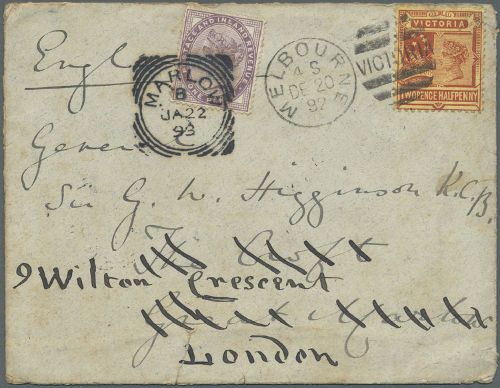 England
POSTAGE AND INLAND REVENUE
MARLOW
B
JA 22
93
MELBOURNE
4 S
DE 20
92
VICTORIA
VICTORIA
TWO PENCE HALFPENNY
General
Sir G. W. Higginson K.C.B.
The Croft
9 Wilton Crescent
Great Marlow
London